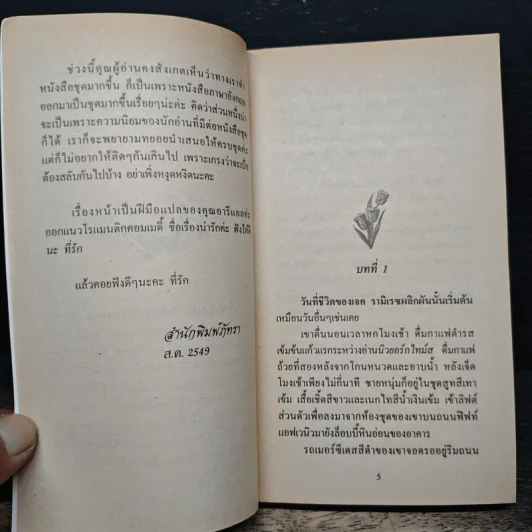 ช่วงนี้คุณผู้อ่านคงสังเกตเห็นว่าทางเราทำ
หนังสือชุดมากขึ้น ก็เป็นเพราะหนังสือภาษาอังกฤษ
ออกมาเป็นชุดมากขึ้นเรื่อยๆน่ะค่ะ คิดว่าส่วนหนึ่งน่า
จะเป็นเพราะความนิยมของนักอ่านที่มีต่อหนังสือชุด
ก็ได้ เราก็จะพยายามทยอยนำเสนอให้ครบชุดค่ะ
แต่ก็ไม่อยากให้ติดๆกันเกินไป เพราะเกรงว่าจะเบื่อ
ต้องสลับกันไปบ้าง อย่าเพิ่งหงุดหงิดนะคะ
เรื่องหน้าเป็นฝีมือแปลของคุณอารีแอลค่ะ
ออกแนวโรแมนติกคอมเมดี้ ชื่อเรื่องน่ารักค่ะ ฟังให้ดี
นะ ที่รัก
แล้วคอยฟังดีๆนะคะ ที่รัก
สำนักพิมพ์ภัทรา
ส.ค. 2549
บทที่ 1
วันที่ชีวิตของเจค รามิเรซพลิกผันนั้นเริ่มต้น
เหมือนวันอื่นๆเช่นเคย
เขาตื่นนอนเวลาหกโมงเช้า ดื่มกาแฟดำรส
เข้มข้นแก้วแรกระหว่างอ่านนิวยอร์กไทม์ส ดื่มกาแฟ
ถ้วยที่สองหลังจากโกนหนวดและอาบน้ำ หลังเจ็ด
โมงเช้าเพียงไม่กี่นาที ชายหนุ่มก็อยู่ในชุดสูทสีเทา
เข้ม เสื้อเชิ้ตสีขาวและเนกไทสีน้ำเงินเข้ม เข้าลิฟต์
ส่วนตัวเพื่อลงมาจากห้องชุดของเขาบนถนนฟิฟท์
แอฟเวนิวมายังล็อบบี้หินอ่อนของอาคาร
รถเมอร์ซีเดสสีดำของเขาจอดรออยู่ริมถนน
5